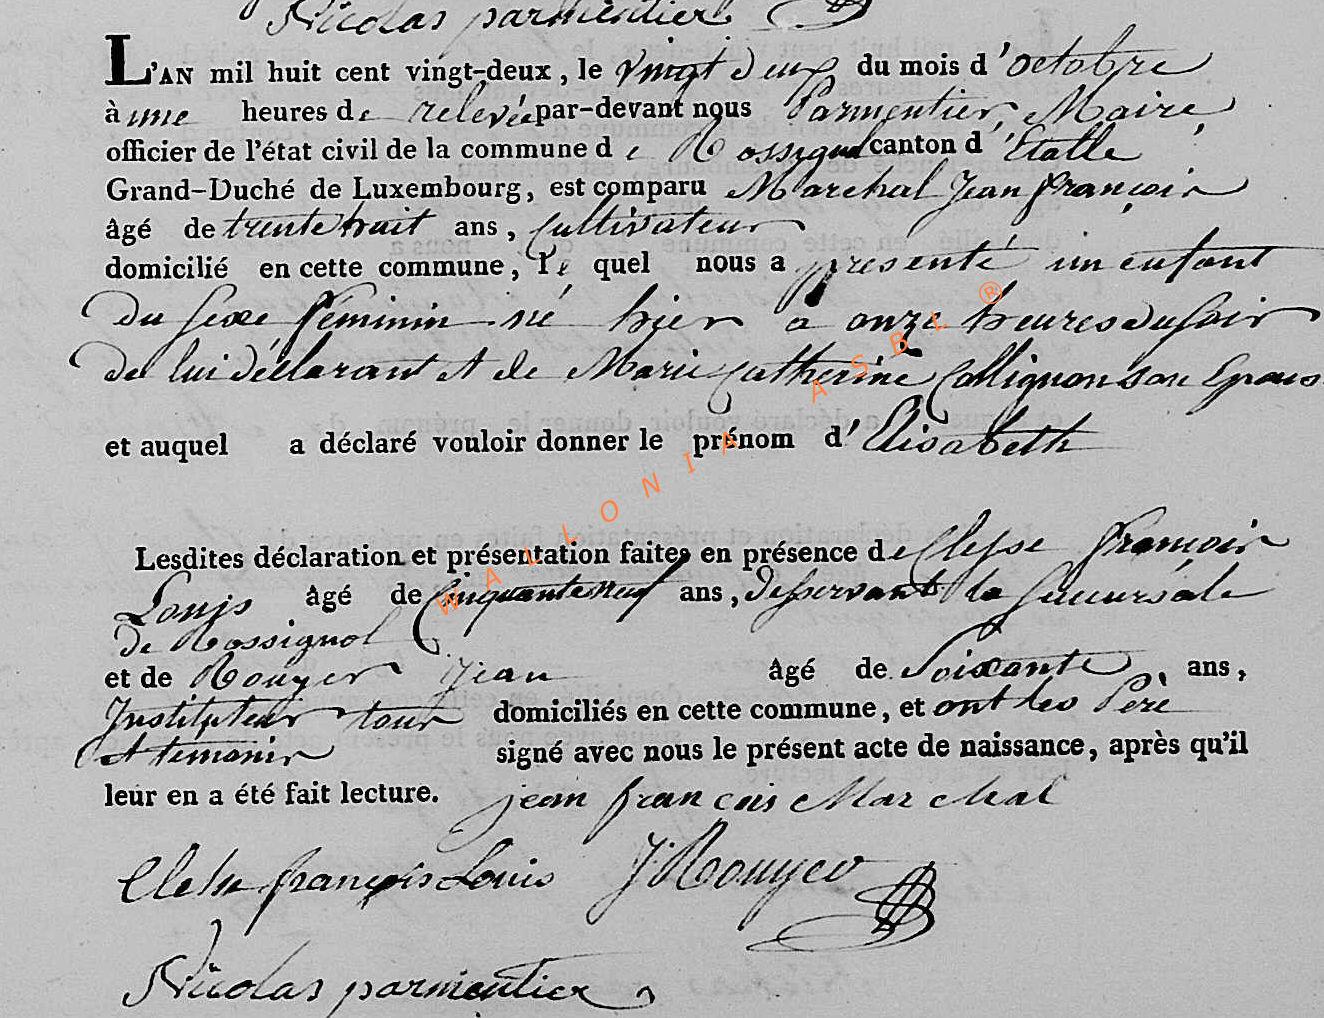 Nicolas parmentier
L'AN mil huit cent vingt-deux, le vingt deux du mois d'octobre
à une heures de relevée par-devant nous Parmentier, Maire
officier de l'état civil de la commune de Rossignol canton d'Etalle
Grand-Duché de Luxembourg, est comparu Marechal Jean françois
âgé de trente huit ans, Cultivateur
domicilié en cette commune, le quel nous a présenté un enfant
du sexe féminin né hier à onze heures du soir
de lui déclarant et de Marie Catherine Collignon son Epouse
et auquel a déclaré vouloir donner le prénom d'Elisabeth
Lesdites déclaration et présentation faites en présence de françois
Louis âgé de Cinquante neuf ans, desservant la succursale
de Rossignol
et de Rouyer Jean âgé de Soixante ans,
Instituteur tour domiciliés en cette commune, et ont les Père
et temoins signé avec nous le présent acte de naissance, après qu'il
leur en a été fait lecture. jean francois Marechal
françois Louis J Rouyer
Nicolas parmentier
WALLONIA ASBL ®